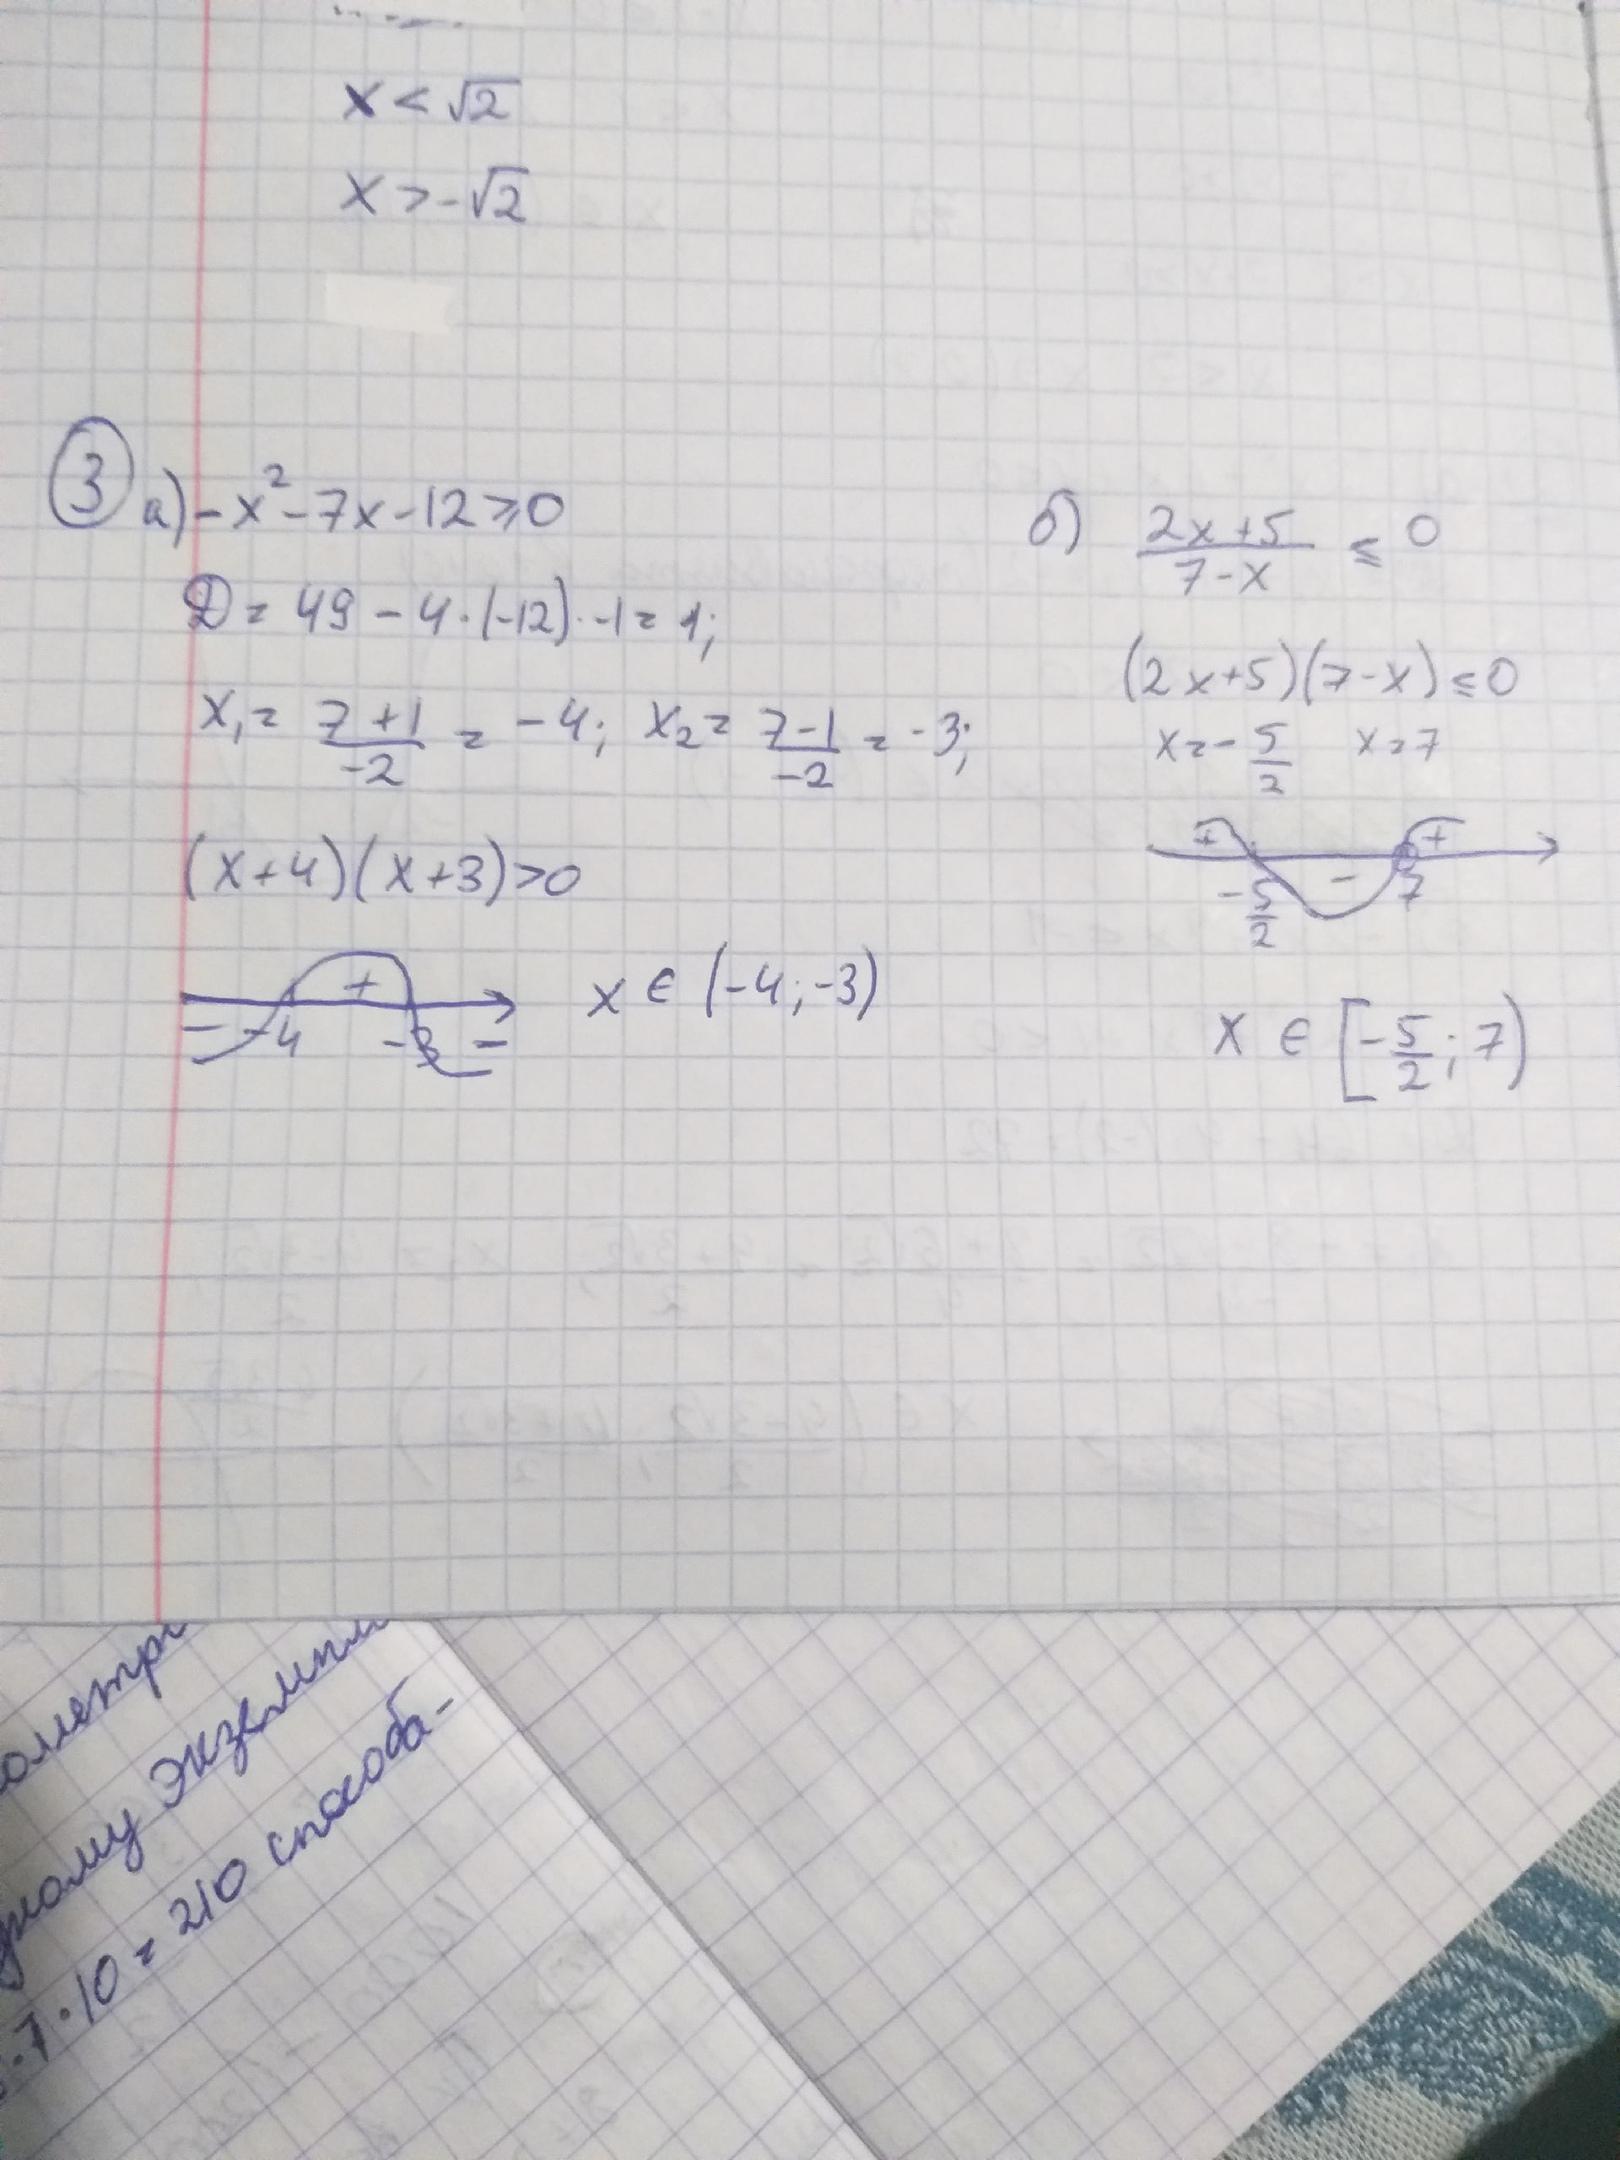 x < √2
x > -√2
3
а) -x² - 7x - 12 ⩾ 0
D = 49 - 4·(-12)·-1 = 1;
x₁ = (7+1)/(-2) = -4; x₂ = (7-1)/(-2) = -3;
(x+4)(x+3)>0
+
- -4 -3 -
x ∈ (-4; -3)
б) (2x+5)/(7-x) ⩽ 0
(2x+5)(7-x) ⩽ 0
x = -5/2 x = 7
+ - +
-5/2 7
x ∈ [-5/2; 7)
экземпл
7·10 = 210 способа-